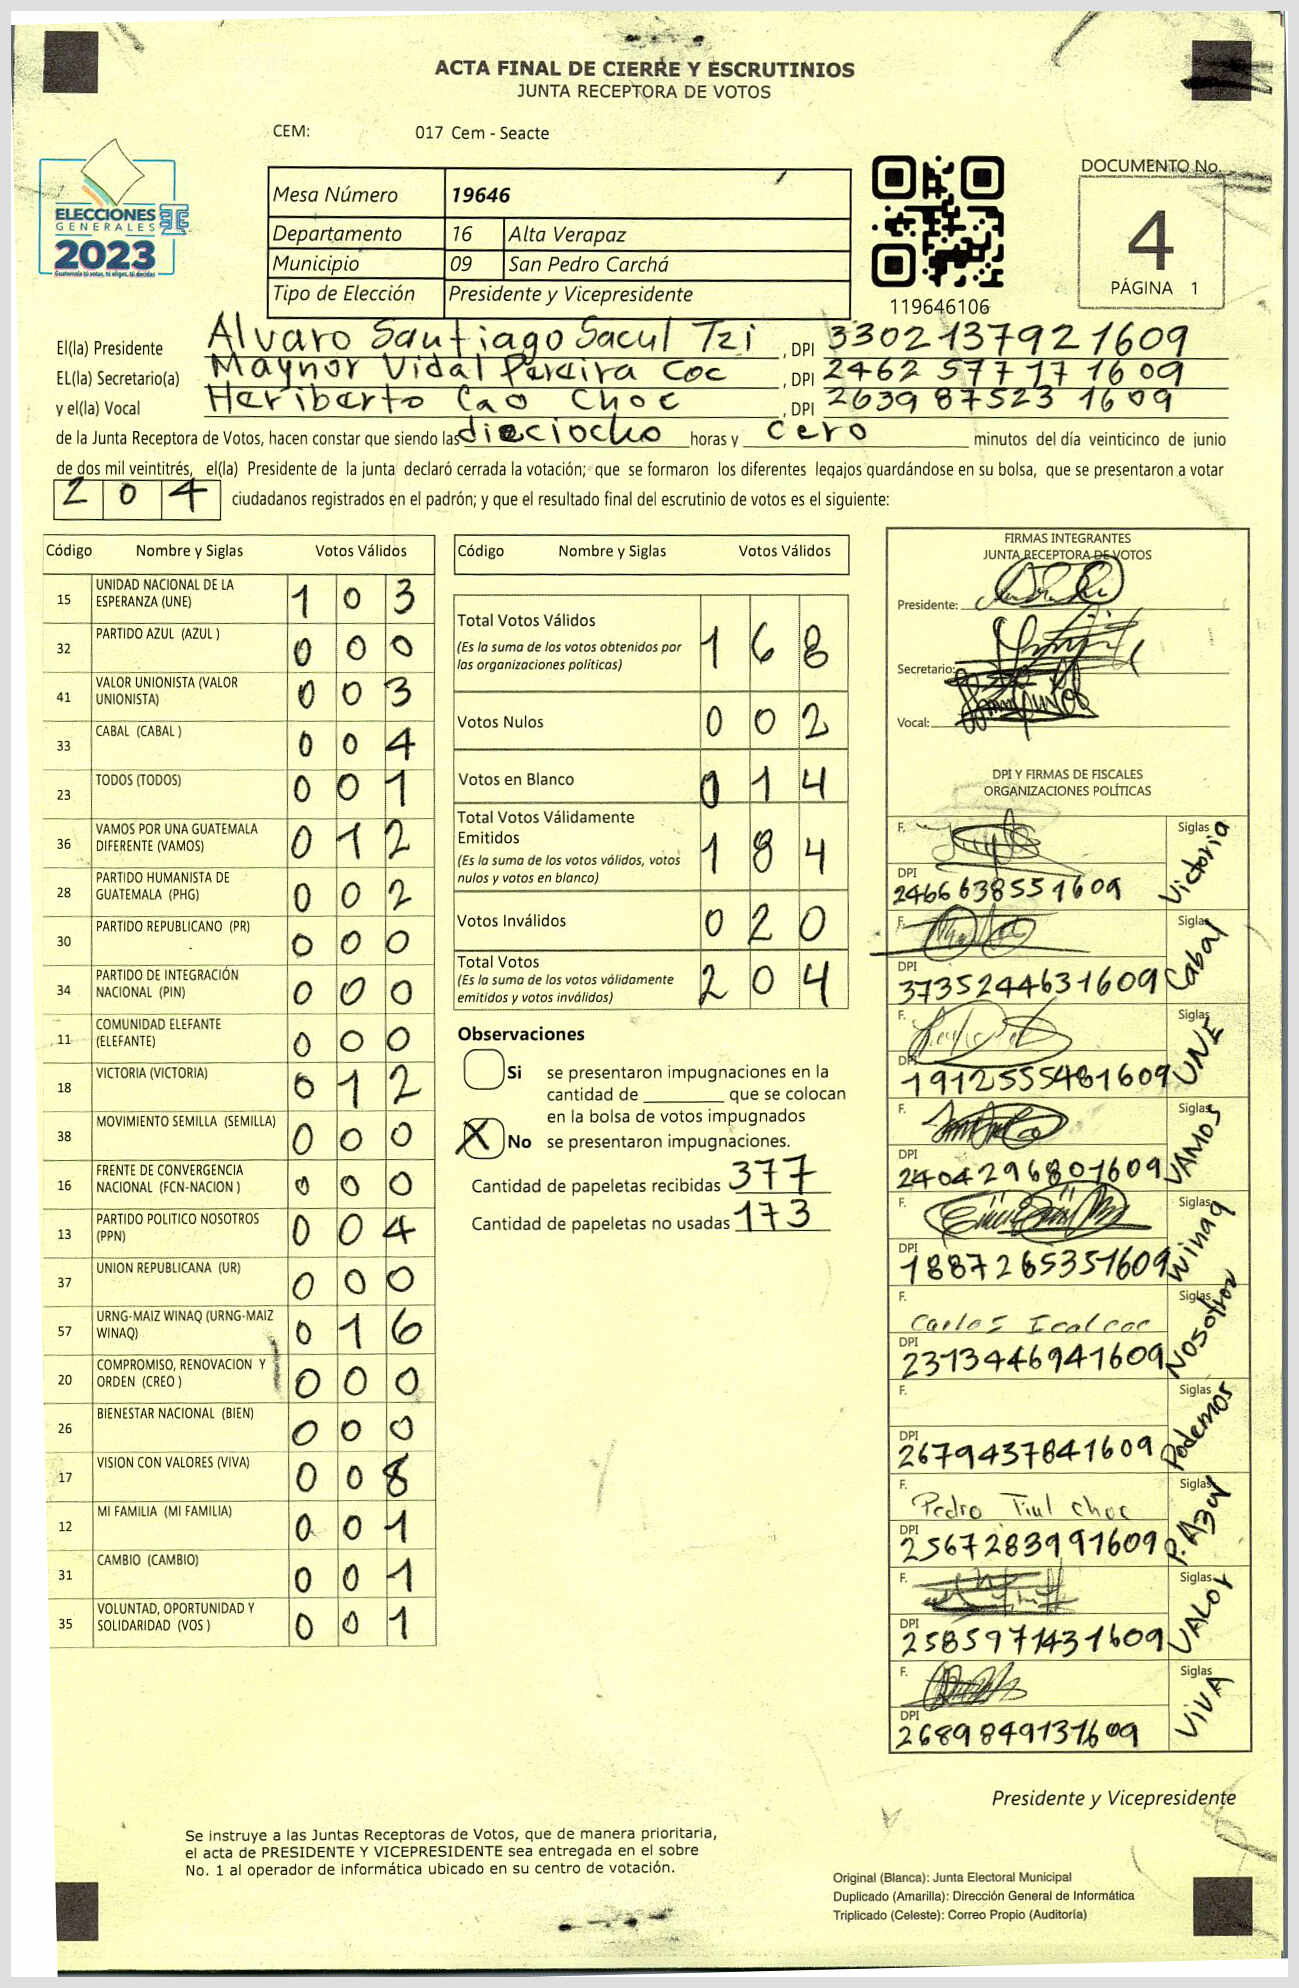 ACTA FINAL DE CIERRE Y ESCRUTINIOS
JUNTA RECEPTORA DE VOTOS
CEM: 017 Cem - Seacte
ELECCIONES
GENERALES
2023
Guatemala tú votas, tú eliges, tú decides
Mesa Número 19646
Departamento 16 Alta Verapaz
Municipio 09 San Pedro Carchá
Tipo de Elección Presidente y Vicepresidente
119646106
DOCUMENTO No.
4
PÁGINA 1
El(la) Presidente Alvaro Santiago Sacul Tzi , DPI 3302137921609
EL(la) Secretario(a) Maynor Vidal Pereira Coc , DPI 2462 57717 1609
y el(la) Vocal Heriberto Cao Choc , DPI 2639 87523 1609
de la Junta Receptora de Votos, hacen constar que siendo las dieciocho horas y cero minutos del día veinticinco de junio
de dos mil veintitrés, el(la) Presidente de la junta declaró cerrada la votación; que se formaron los diferentes legajos guardándose en su bolsa, que se presentaron a votar
204 ciudadanos registrados en el padrón; y que el resultado final del escrutinio de votos es el siguiente:
Código Nombre y Siglas Votos Válidos
15 UNIDAD NACIONAL DE LA ESPERANZA (UNE) 1 0 3
32 PARTIDO AZUL (AZUL ) 0 0 0
41 VALOR UNIONISTA (VALOR UNIONISTA) 0 0 3
33 CABAL (CABAL ) 0 0 4
23 TODOS (TODOS) 0 0 1
36 VAMOS POR UNA GUATEMALA DIFERENTE (VAMOS) 0 1 2
28 PARTIDO HUMANISTA DE GUATEMALA (PHG) 0 0 2
30 PARTIDO REPUBLICANO (PR) 0 0 0
34 PARTIDO DE INTEGRACIÓN NACIONAL (PIN) 0 0 0
11 COMUNIDAD ELEFANTE (ELEFANTE) 0 0 0
18 VICTORIA (VICTORIA) 0 1 2
38 MOVIMIENTO SEMILLA (SEMILLA) 0 0 0
16 FRENTE DE CONVERGENCIA NACIONAL (FCN-NACION ) 0 0 0
13 PARTIDO POLITICO NOSOTROS (PPN) 0 0 4
37 UNION REPUBLICANA (UR) 0 0 0
57 URNG-MAIZ WINAQ (URNG-MAIZ WINAQ) 0 1 6
20 COMPROMISO, RENOVACION Y ORDEN (CREO ) 0 0 0
26 BIENESTAR NACIONAL (BIEN) 0 0 0
17 VISION CON VALORES (VIVA) 0 0 8
12 MI FAMILIA (MI FAMILIA) 0 0 1
31 CAMBIO (CAMBIO) 0 0 1
35 VOLUNTAD, OPORTUNIDAD Y SOLIDARIDAD (VOS ) 0 0 1
Código Nombre y Siglas Votos Válidos
Total Votos Válidos 1 6 8
(Es la suma de los votos obtenidos por
las organizaciones políticas)
Votos Nulos 0 0 2
Votos en Blanco 0 1 4
Total Votos Válidamente
Emitidos 1 8 4
(Es la suma de los votos válidos, votos
nulos y votos en blanco)
Votos Inválidos 0 2 0
Total Votos 2 0 4
(Es la suma de los votos válidamente
emitidos y votos inválidos)
Observaciones
Si se presentaron impugnaciones en la
cantidad de ________ que se colocan
en la bolsa de votos impugnados
X No se presentaron impugnaciones.
Cantidad de papeletas recibidas 377
Cantidad de papeletas no usadas 173
FIRMAS INTEGRANTES
JUNTA RECEPTORA DE VOTOS
Presidente:
Secretario:
Vocal:
DPI Y FIRMAS DE FISCALES
ORGANIZACIONES POLÍTICAS
F. Siglas Victoria
DPI 2466638551609
F. Siglas Cabal
DPI 3735244631609
F. Siglas UNE
DPI 1912555481609
F. Siglas VAMOS
DPI 2404296801609
F. Siglas Winaq
DPI 1887265351609
F. Carlos Icalcoc Siglas Nosotros
DPI 2313446941609
F. Siglas Podemos
DPI 2679437841609
F. Pedro Tiul choc Siglas P. Azul
DPI 2567283991609
F. Siglas VALOR
DPI 2585971431609
F. Siglas VIVA
DPI 2689849131609
Presidente y Vicepresidente
Se instruye a las Juntas Receptoras de Votos, que de manera prioritaria,
el acta de PRESIDENTE Y VICEPRESIDENTE sea entregada en el sobre
No. 1 al operador de informática ubicado en su centro de votación.
Original (Blanca): Junta Electoral Municipal
Duplicado (Amarilla): Dirección General de Informática
Triplicado (Celeste): Correo Propio (Auditoría)